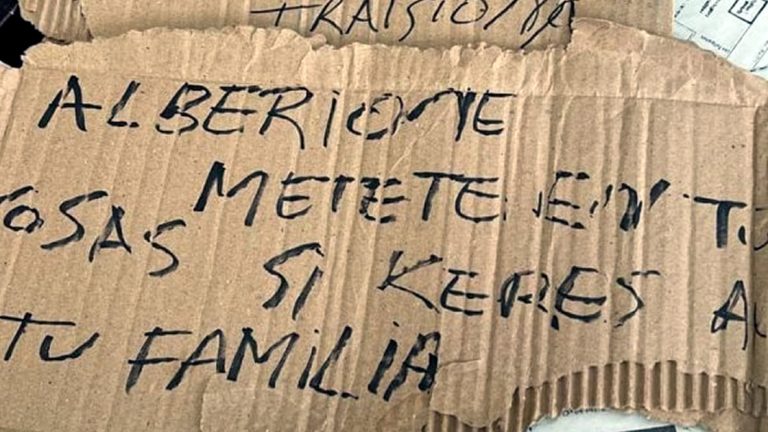 ALBERIONE
METETE EN TU
COSAS SI KERES A
TU FAMILIA